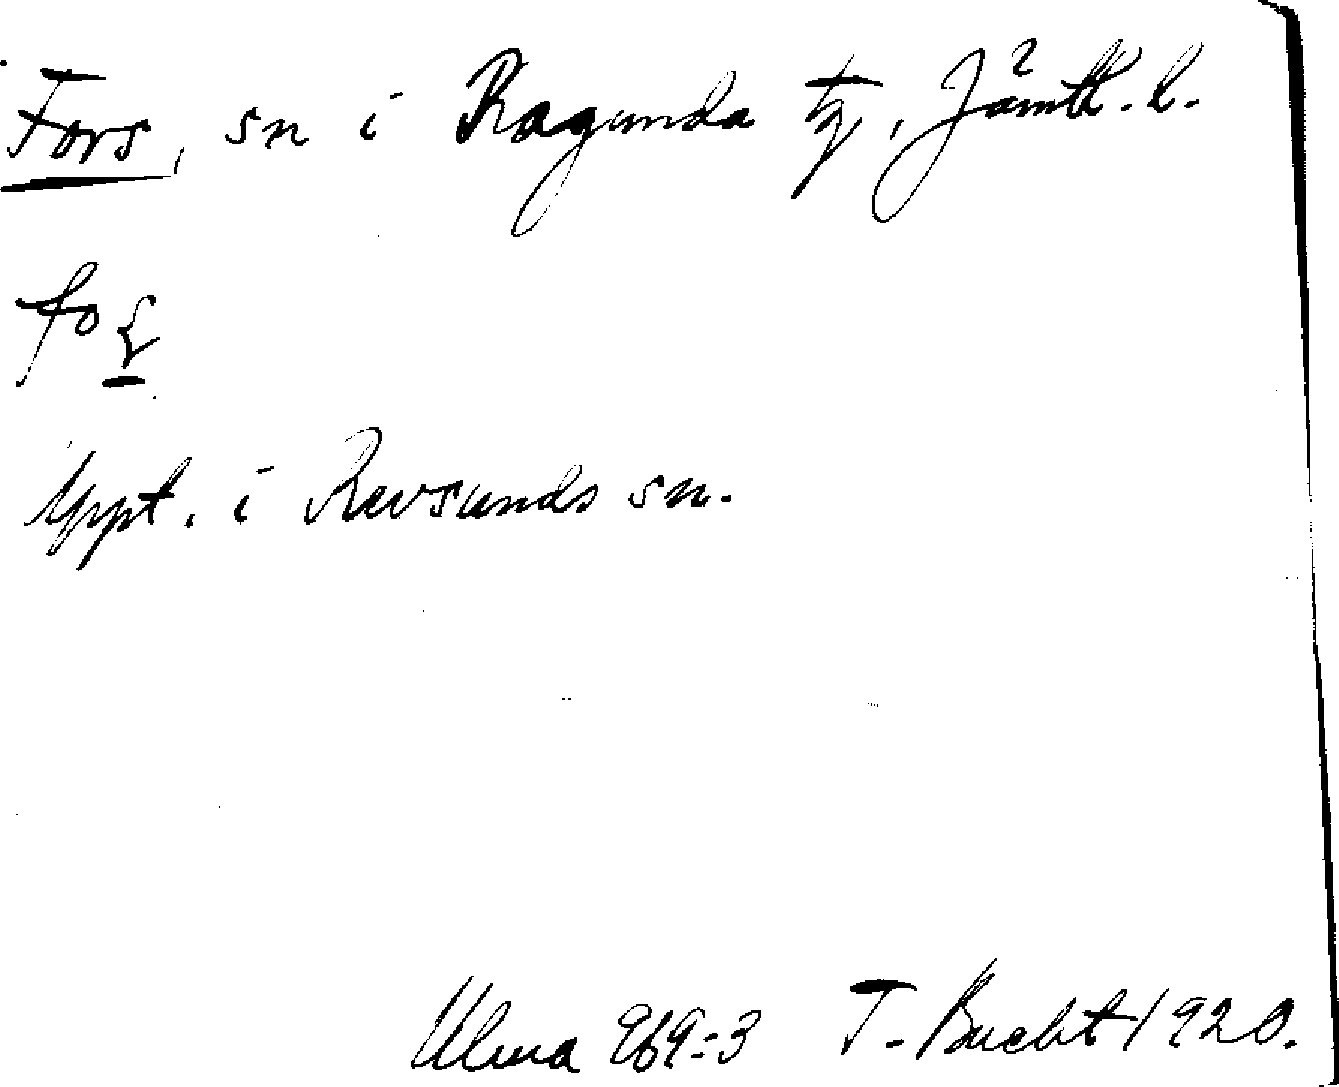 Fors, sn i Ragunda tg, Jämtl. l.
fo
Uppt. i Revsunds sn.
Ulma 969:3 T. Bucht 1920.